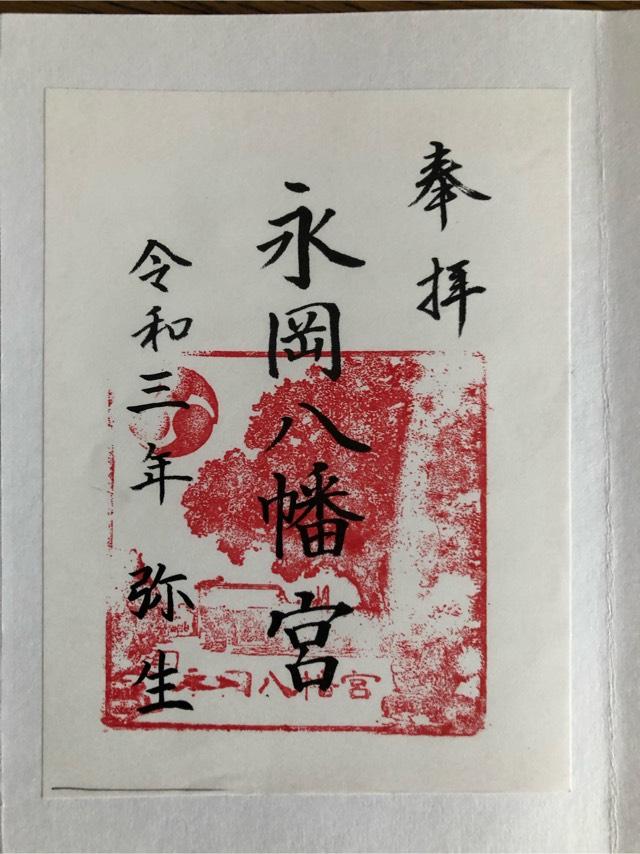 奉拝
永岡八幡宮
令和三年 弥生
永岡八幡宮